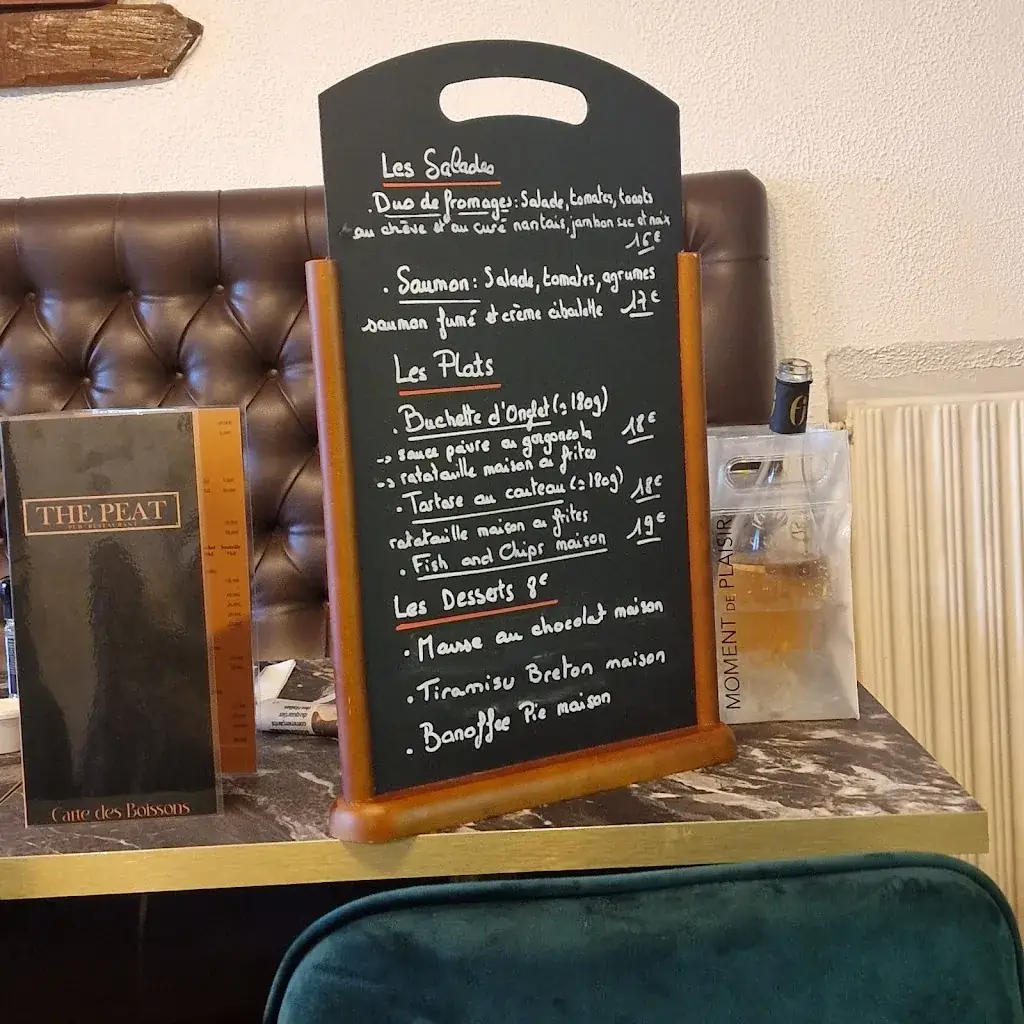 Les Salades
. Duo de fromages : Salade, tomates, toasts
au chèvre et au curé nantais, jambon sec et noix
16€
. Saumon : Salade, tomates, agrumes
saumon fumé et crème ciboulette 17€
Les Plats
. Buchette d'Onglet (≃ 180g)
-> sauce poivre ou gorgonzola 18€
-> ratatouille maison ou frites
. Tartare au couteau (≃ 180g) 18€
ratatouille maison ou frites
. Fish and Chips maison 19€
Les Desserts 8€
. Mousse au chocolat maison
. Tiramisu Breton maison
. Banoffee Pie maison
THE PEAT
PUB RESTAURANT
Carte des Boissons
MOMENT DE PLAISIR